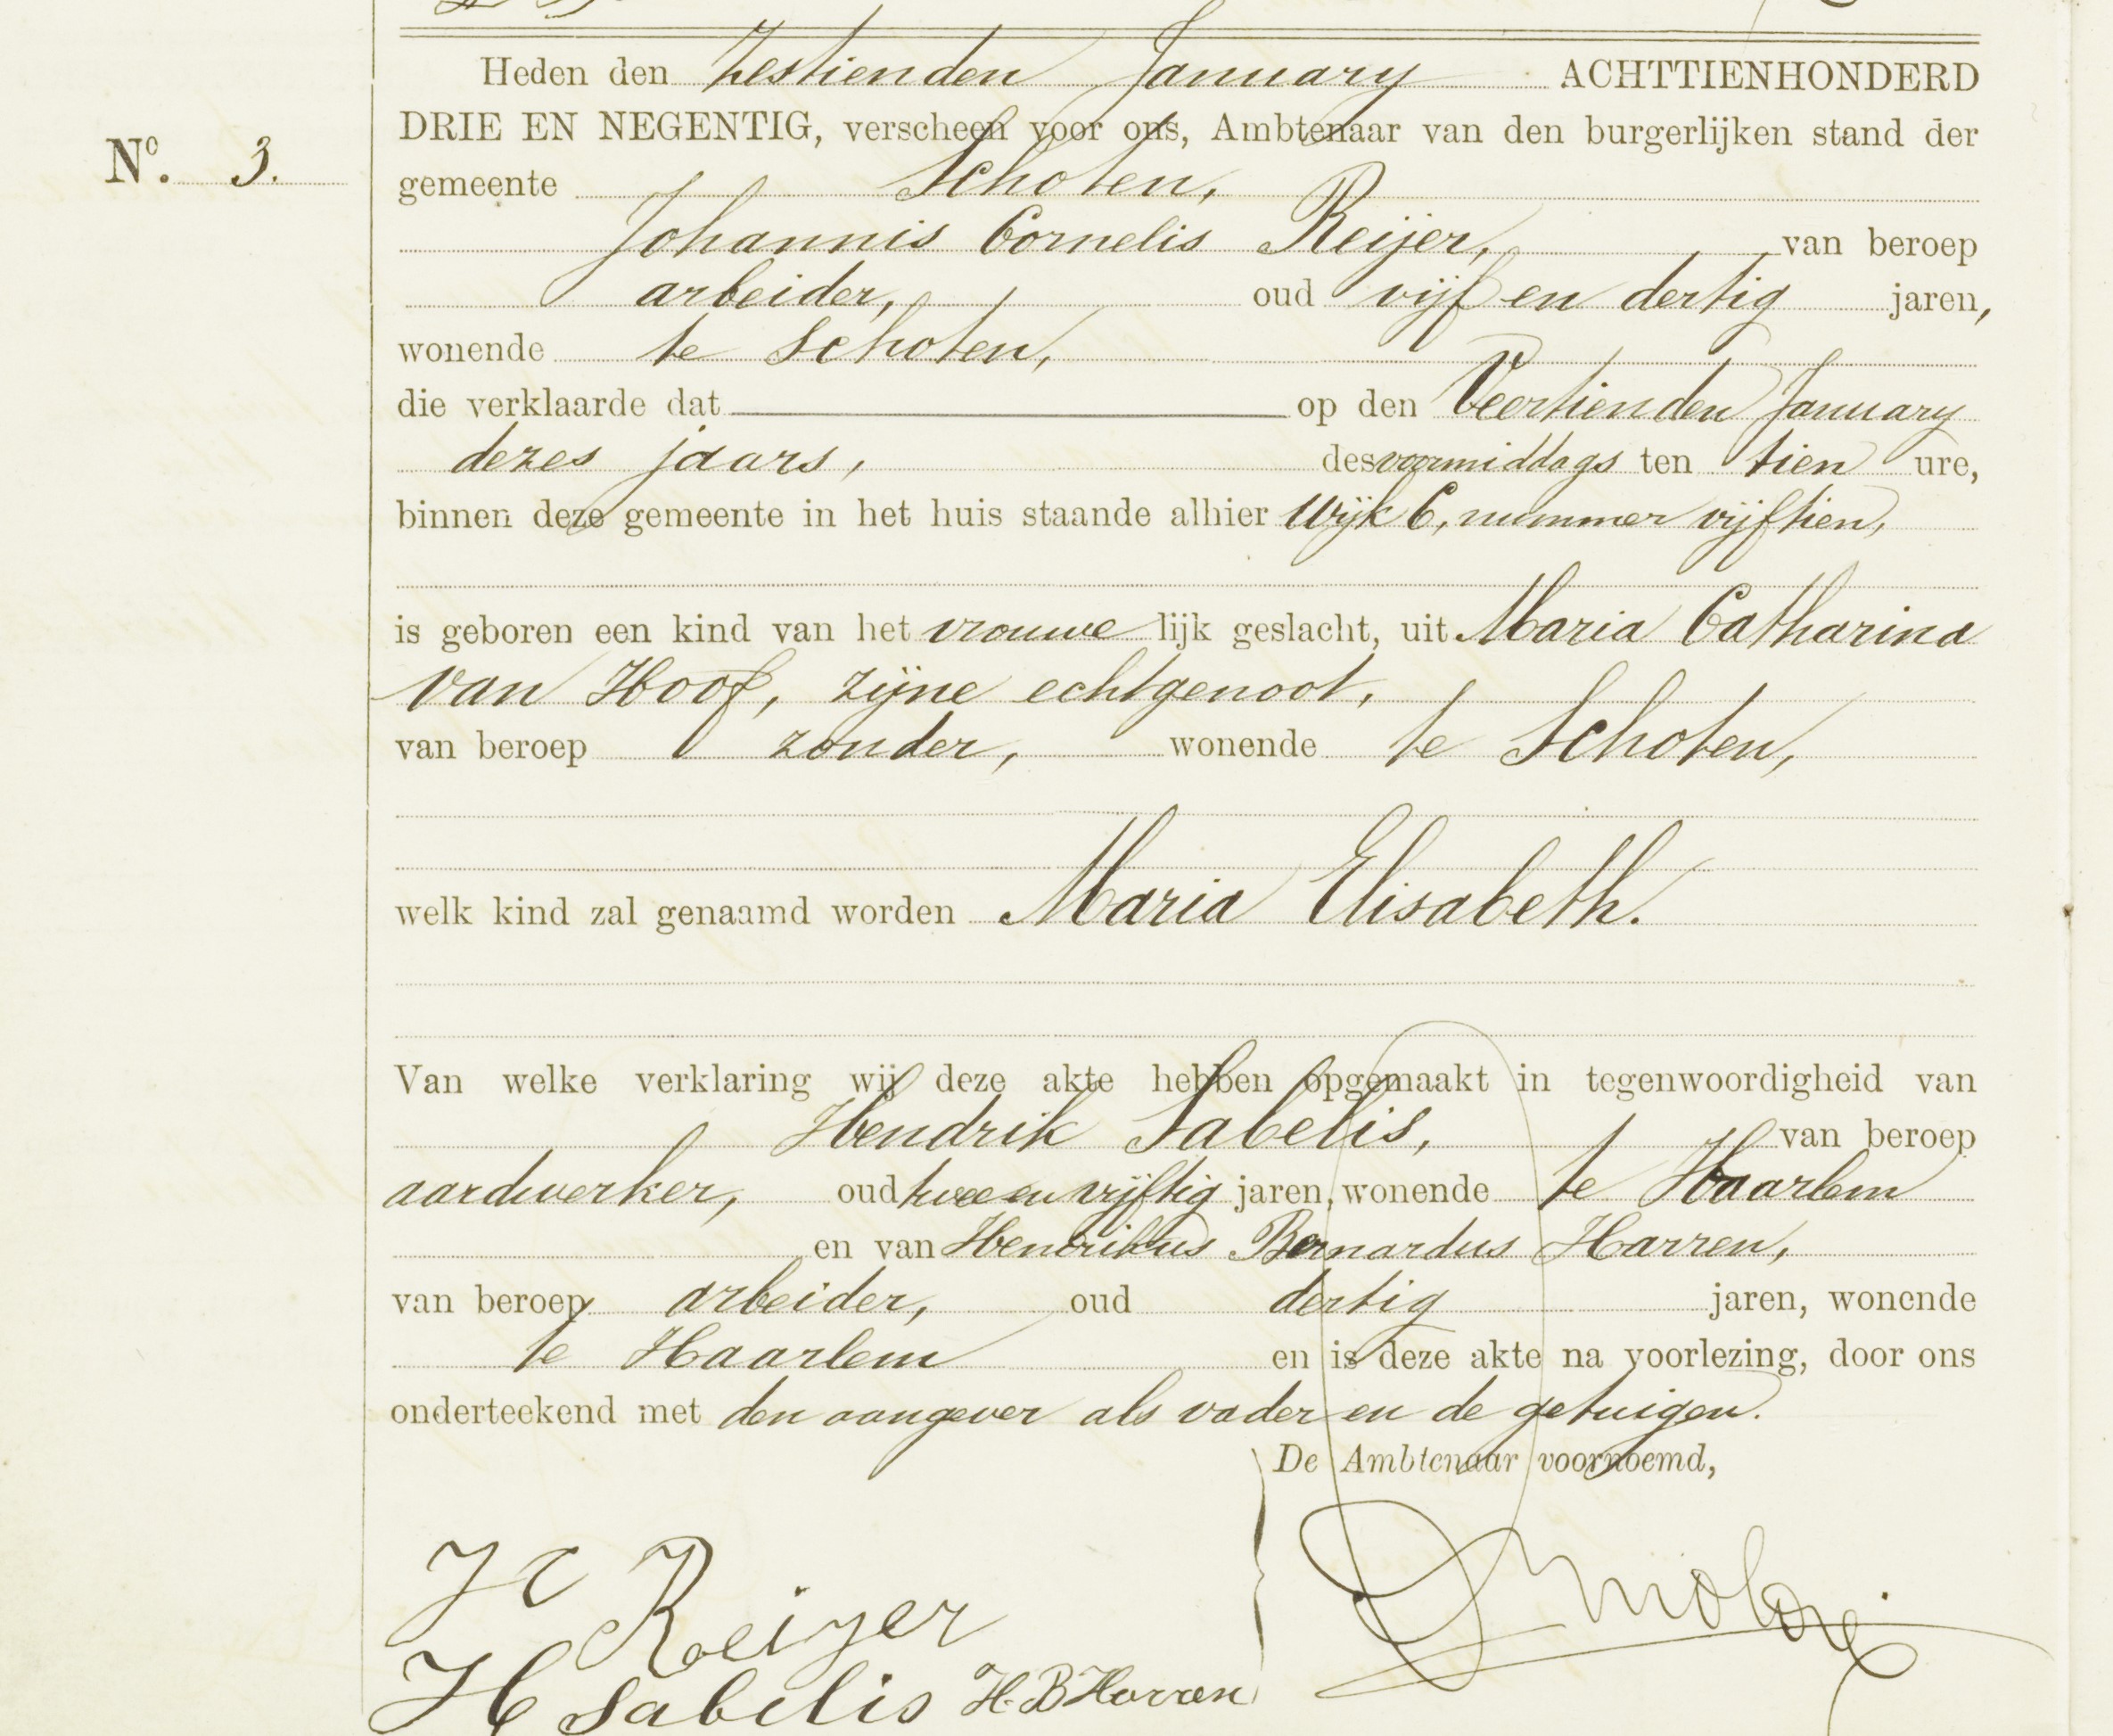 Heden den Zestienden January ACHTTIENHONDERD
DRIE EN NEGENTIG, verscheen voor ons, Ambtenaar van den burgerlijken stand der
No. 3.
gemeente Schoten,
Johannis Cornelis Reijer, van beroep
arbeider, oud vijf en dertig jaren,
wonende te Schoten,
die verklaarde dat op den Veertienden January
dezes jaars, des voormiddags ten tien ure,
binnen deze gemeente in het huis staande alhier Wijk C, nummer vijftien,
is geboren een kind van het vrouwelijk geslacht, uit Maria Catharina
van Hoof, zijne echtgenoot,
van beroep zonder, wonende te Schoten,
welk kind zal genaamd worden Maria Elisabeth.
Van welke verklaring wij deze akte hebben opgemaakt in tegenwoordigheid van
Hendrik Sabelis, van beroep
aardwerker, oud twee en vijftig jaren, wonende te Haarlem
en van Hendrikus Bernardus Harren,
van beroep arbeider, oud dertig jaren, wonende
te Haarlem en is deze akte na voorlezing, door ons
onderteekend met den aangever als vader en de getuigen.
De Ambtenaar voornoemd,
J C Reijer
H Sabelis H. B Harren